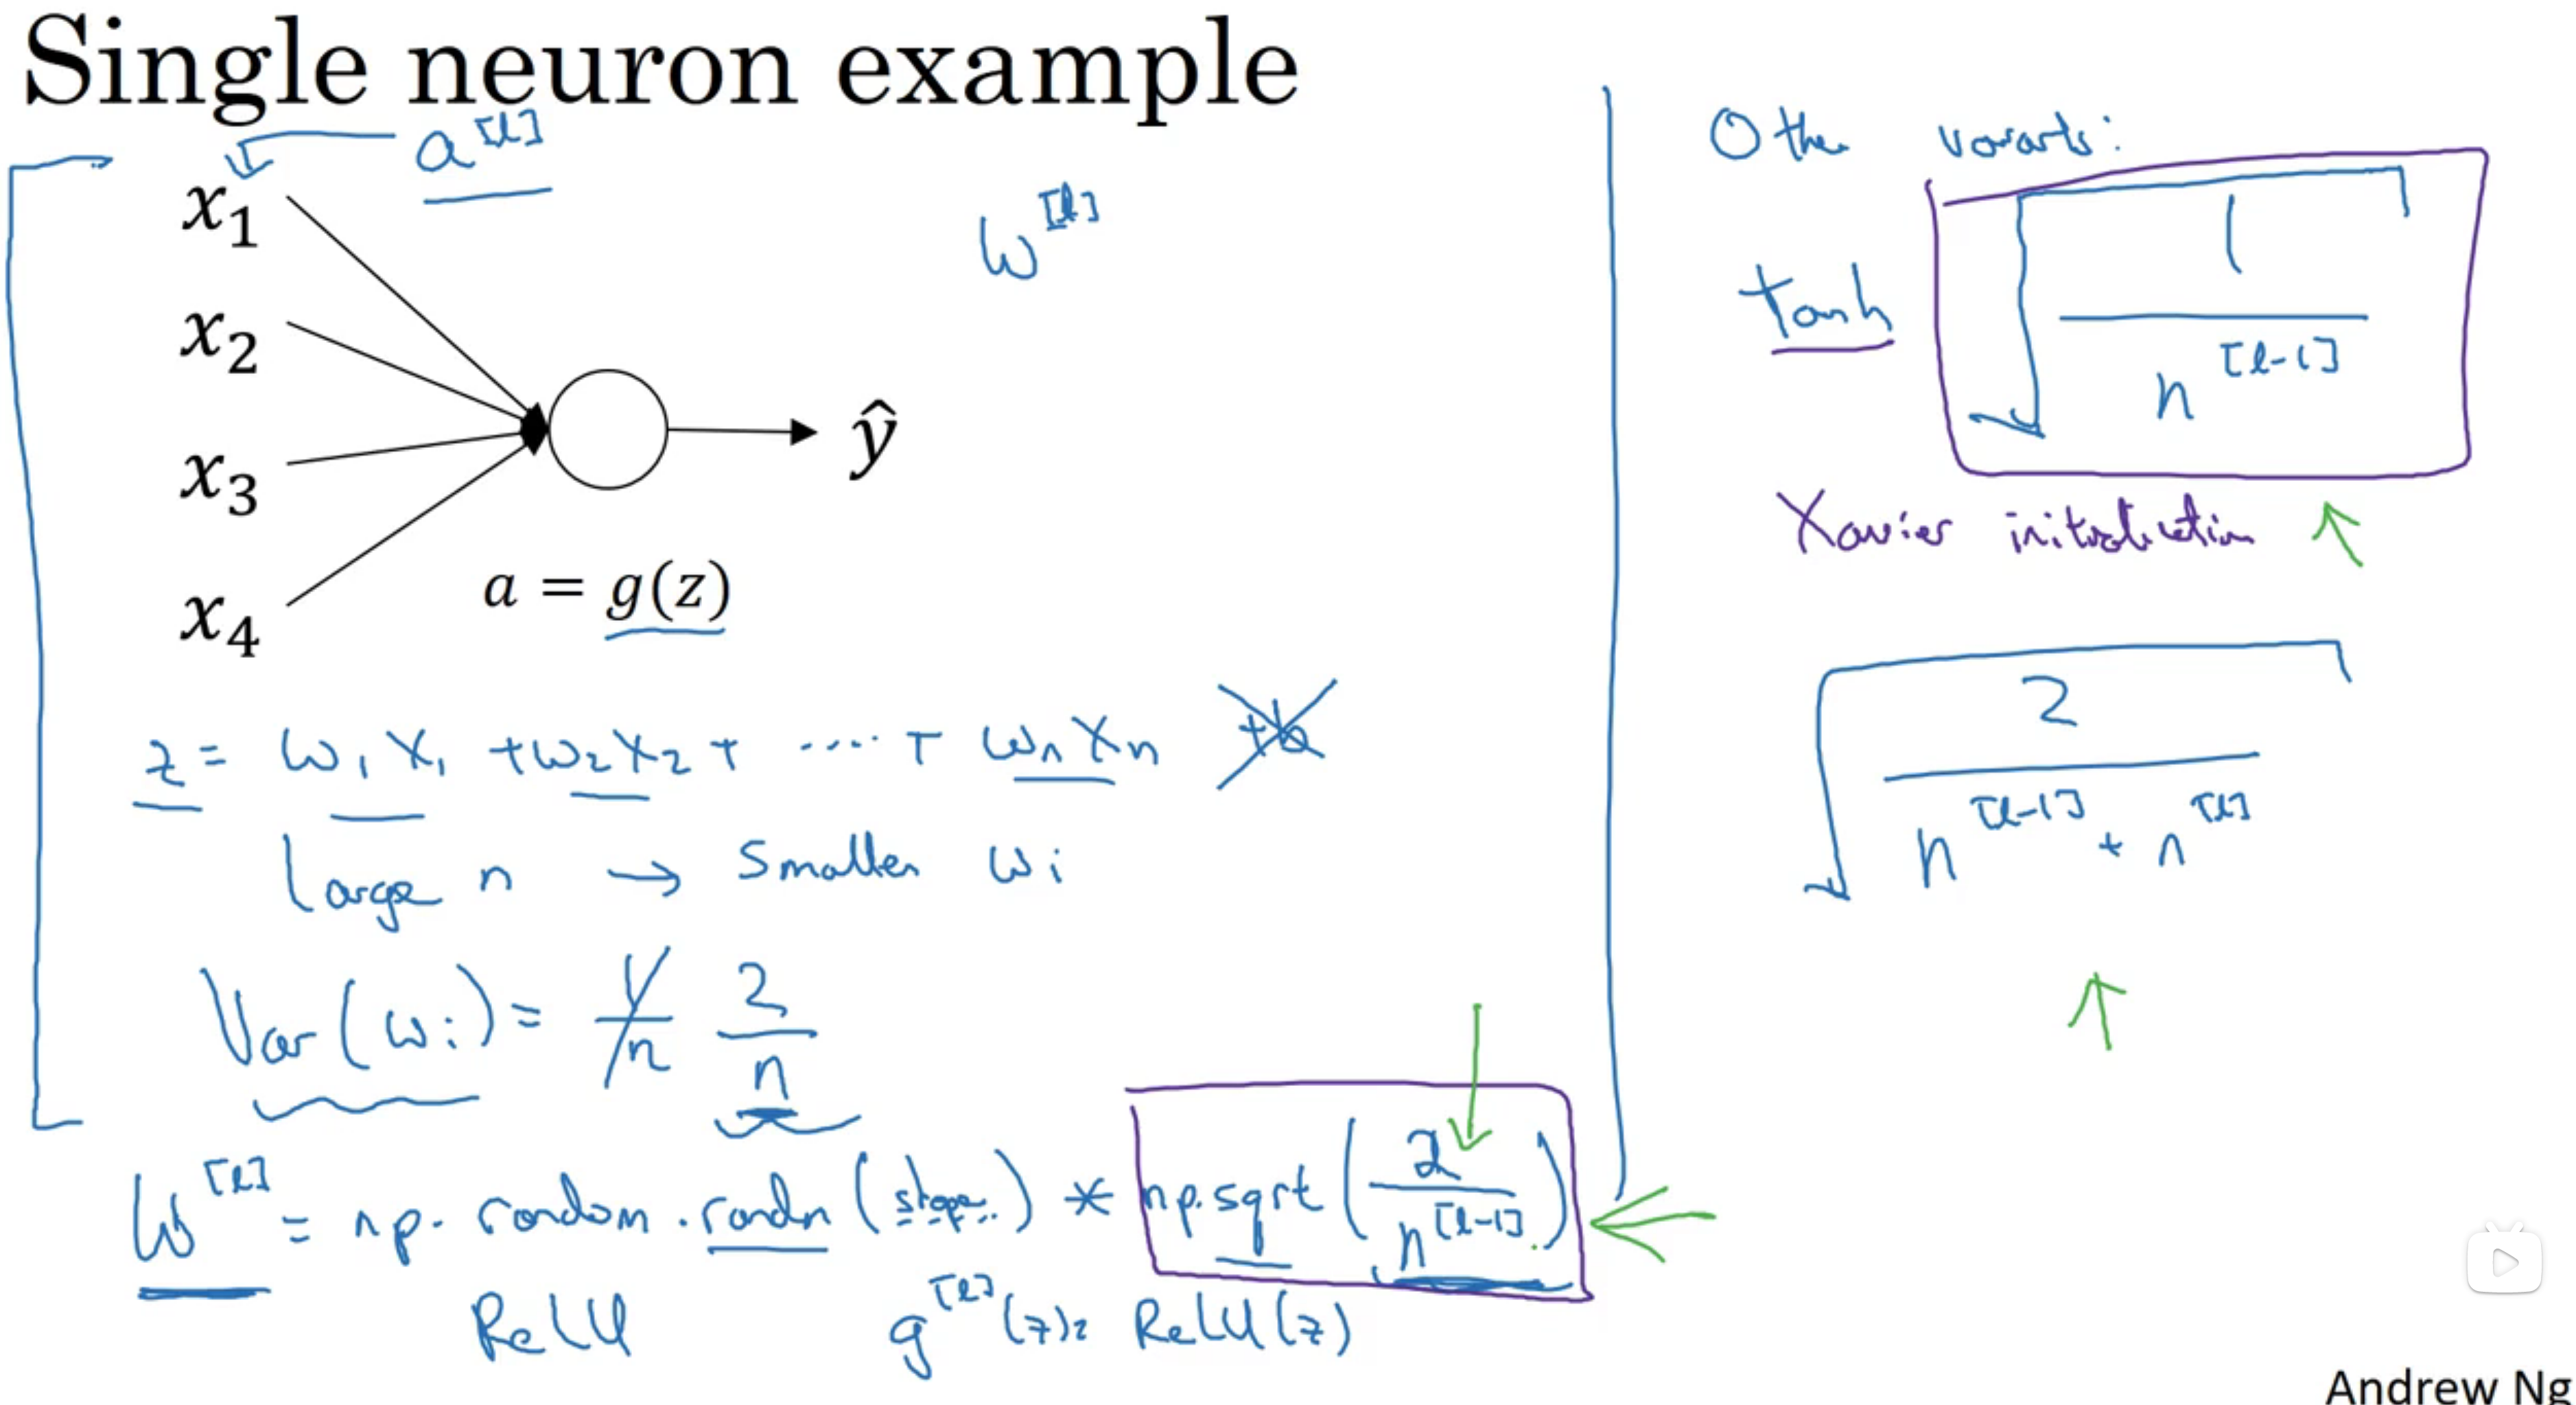 Single neuron example
a^[l]
x₁
x₂
x₃
x₄
ŷ
a = g(z)
W^[l]
z = w₁x₁ + w₂x₂ + .... + wₙxₙ +b
Large n → Smaller wᵢ
Var(wᵢ) = 1/n 2/n
W^[l] = np.random.randn(shape) * np.sqrt(2/n^[l-1])
ReLU g^[l](z) = ReLU(z)
Other variants:
tanh √(1/n^[l-1])
Xavier initialization
√(2/(n^[l-1] + n^[l]))
Andrew Ng